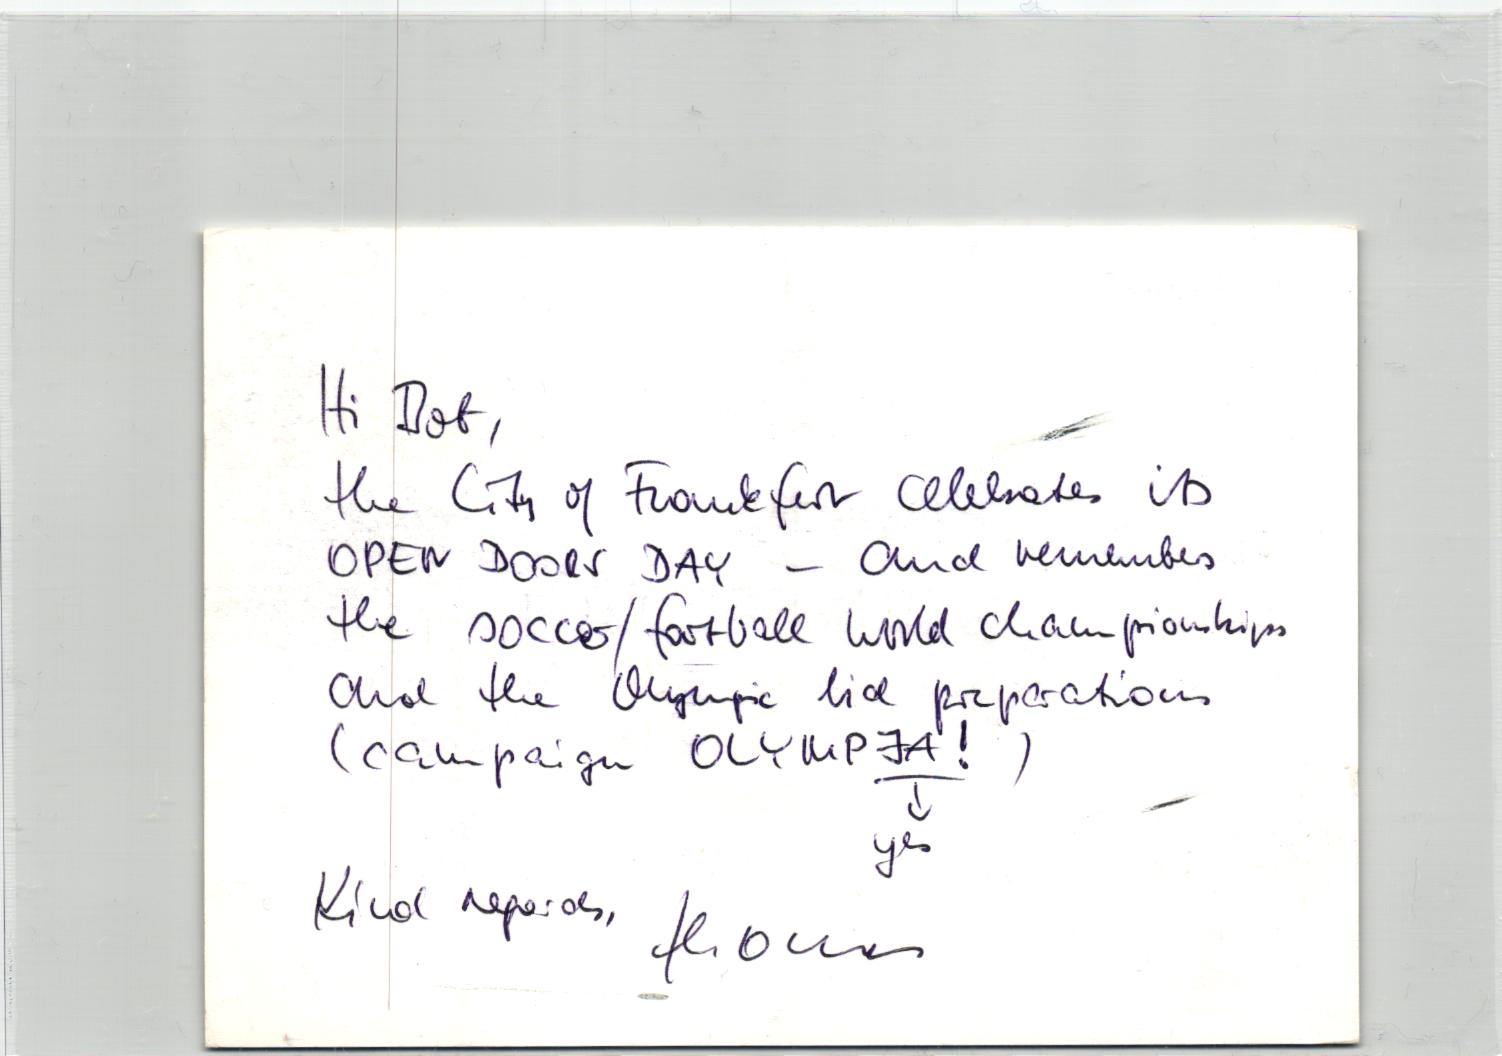 Hi Dot,
the City of Frankfurt celebrates its
OPEN DOORS DAY – and remembers
the soccer/football world championships
and the Olympic bid preparations
(campaign OLYMPJA! )
↓
yes
Kind regards, Thomas